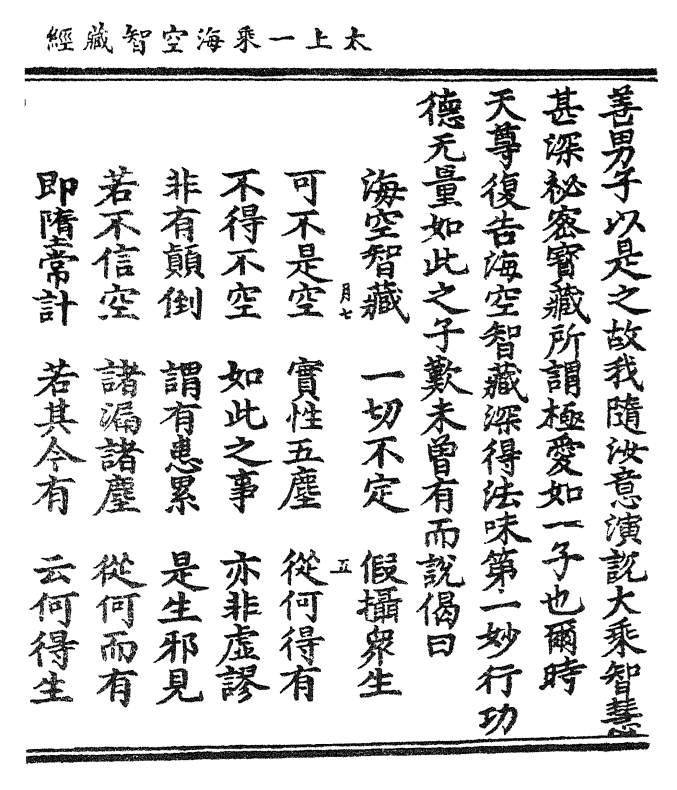 太上一乘海空智藏經
善男子以是之故我隨汝意演說大乘智慧
甚深祕密寶藏所謂極愛如一子也爾時
天尊復告海空智藏深得法味第一妙行功
德无量如此之子歎未曾有而說偈曰
海空智藏 一切不定 假攝眾生
月七 五
可不是空 實性五塵 從何得有
不得不空 如此之事 亦非虛謬
非有顛倒 謂有患累 是生邪見
若不信空 諸漏諸塵 從何而有
即隋常計 若其今有 云何得生